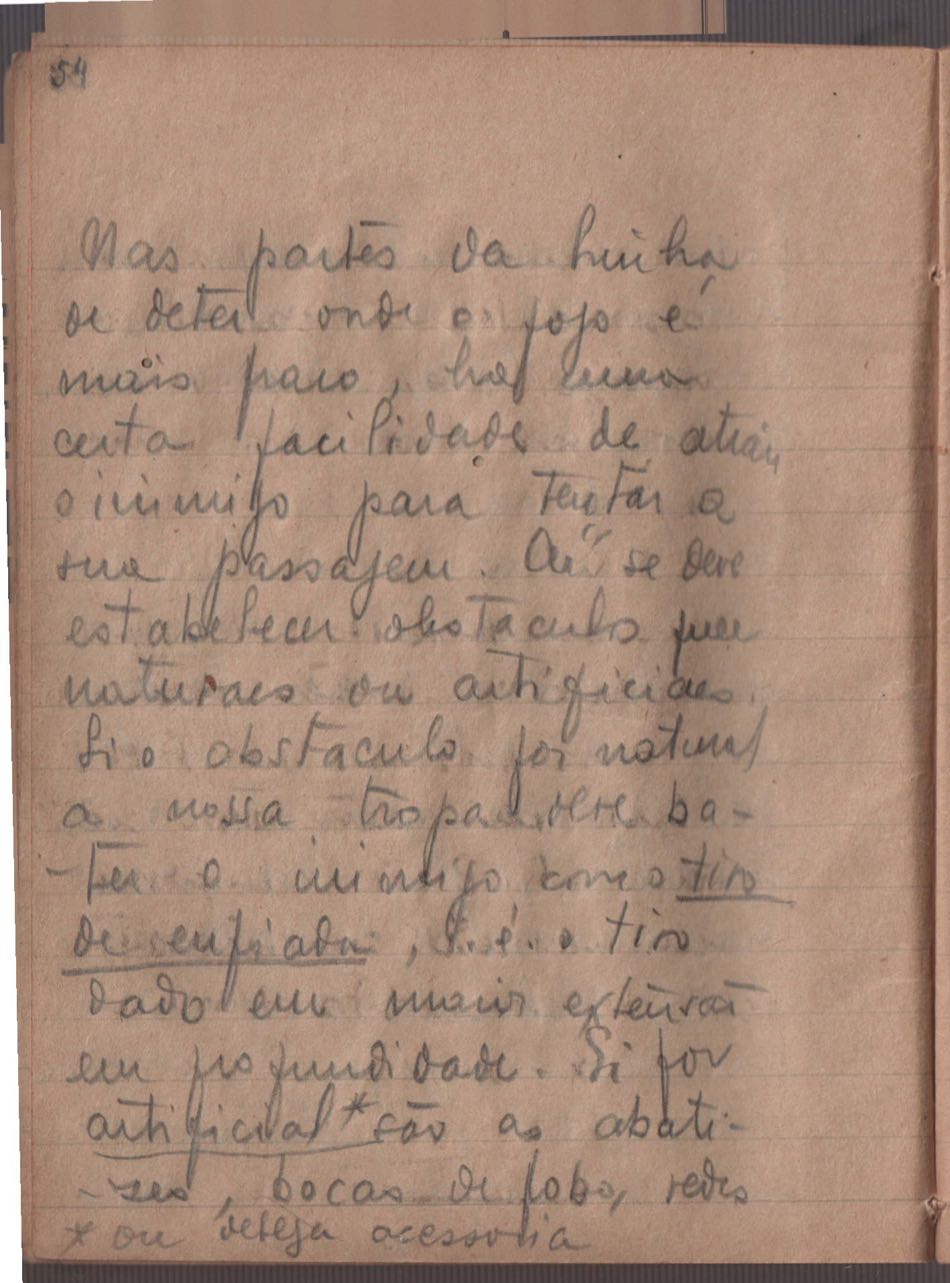 54
Nas partes da linha
de deter onde o fogo é
mais raro, ha uma
certa facilidade de atrair
o inimigo para tentar a
sua passagem. Aí se deve
estabelecer obstaculos quer
naturaes ou artificiaes.
Si o obstaculo for natural
a nossa tropa deve ba-
-ter o inimigo com o tiro
de enfiada, i. é. o tiro
dado em maior extensão
em profundidade. Si for
artificial * são as abati-
-zes, bocas de lobo, redes
* ou defesa acessoria